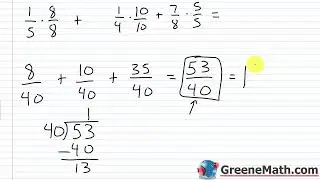 1/5 · 8/8 + 1/4 · 10/10 + 7/8 · 5/5 =
8/40 + 10/40 + 35/40 = 53/40 = 1
1
40)53
-40
13
GreeneMath.com